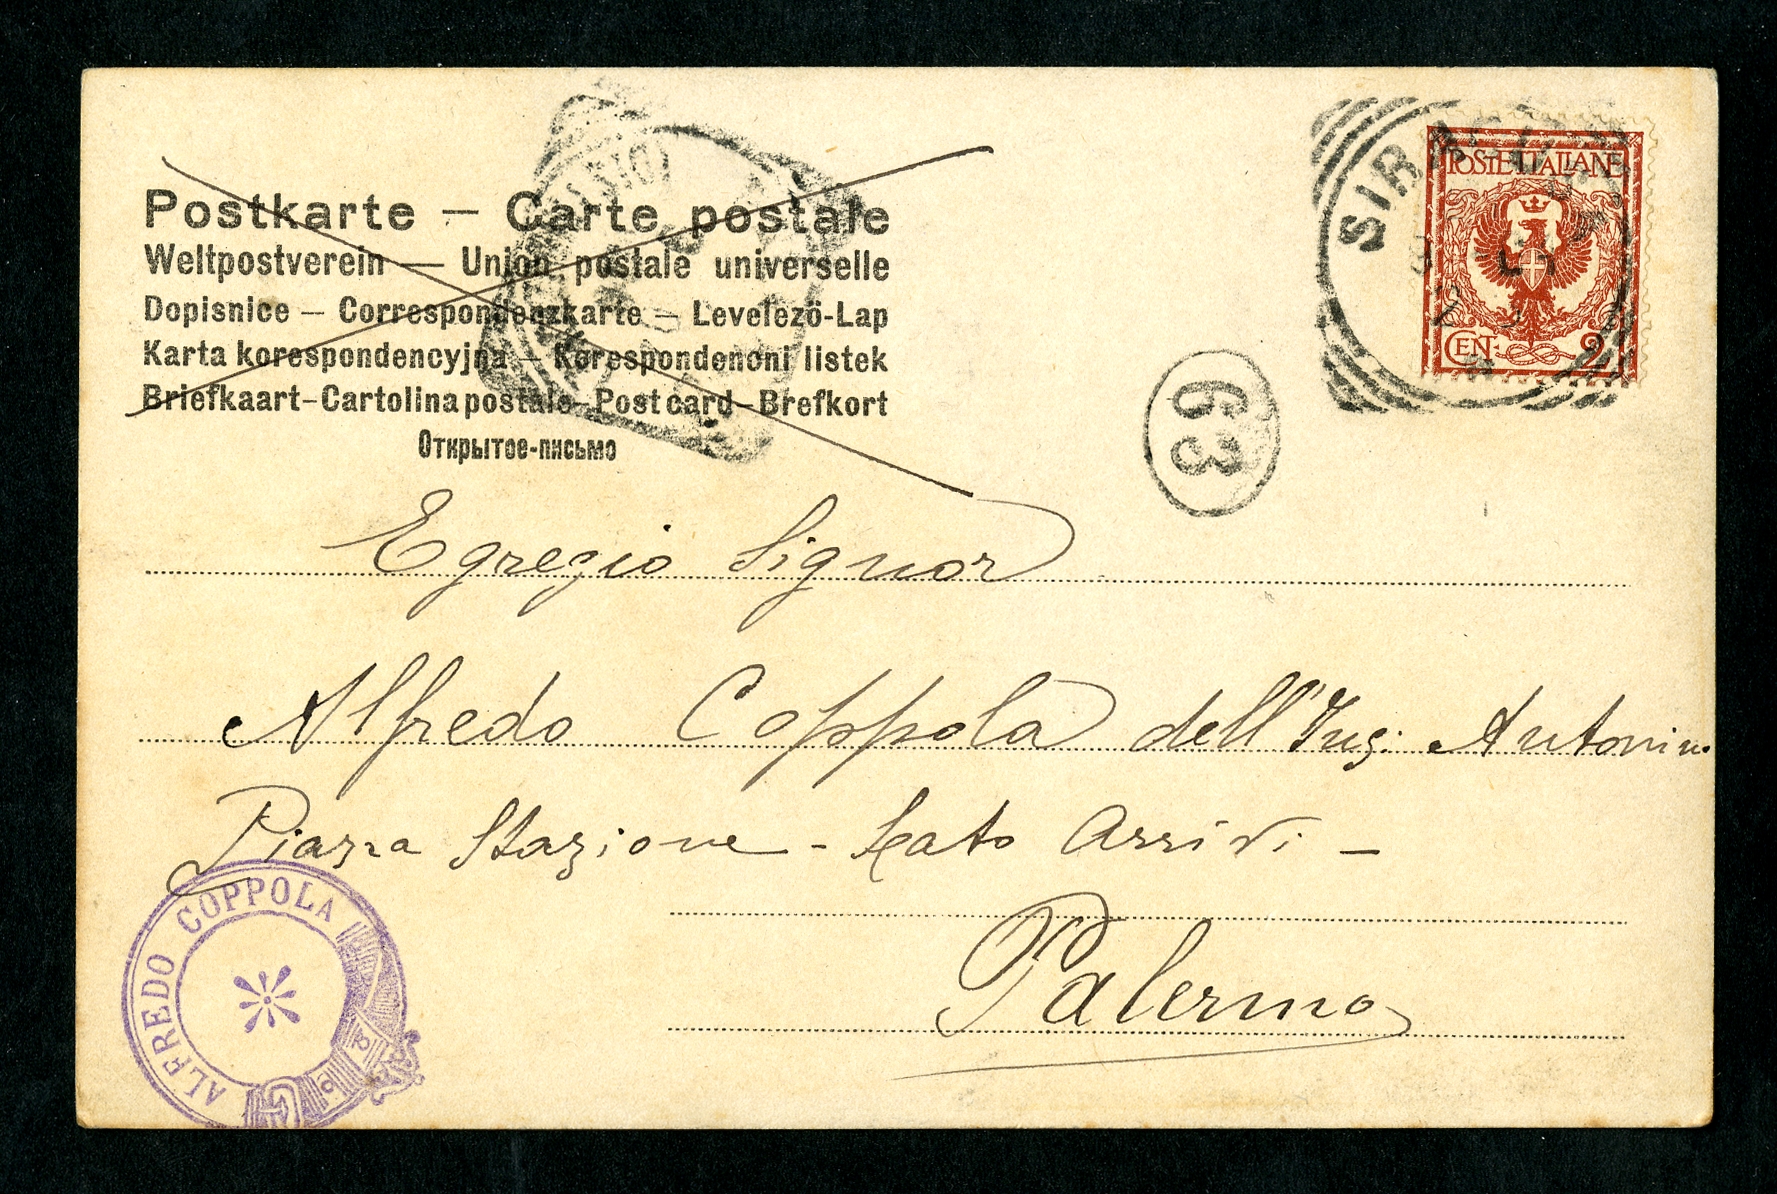 Postkarte — Carte postale
Weltpostverein — Union postale universelle
Dopisnice — Correspondenzkarte — Levelezö-Lap
Karta korespondencyjna — Korespondencni listek
Briefkaart—Cartolina postale—Post card—Brefkort
Открытое-письмо
SIRACUSA
POSTE ITALIANE
CEN: 2
63
Egregio Signor
Alfredo Coppola dell'Ing: Antonino
Piazza Stazione - Lato Arrivi -
Palermo
ALFREDO COPPOLA